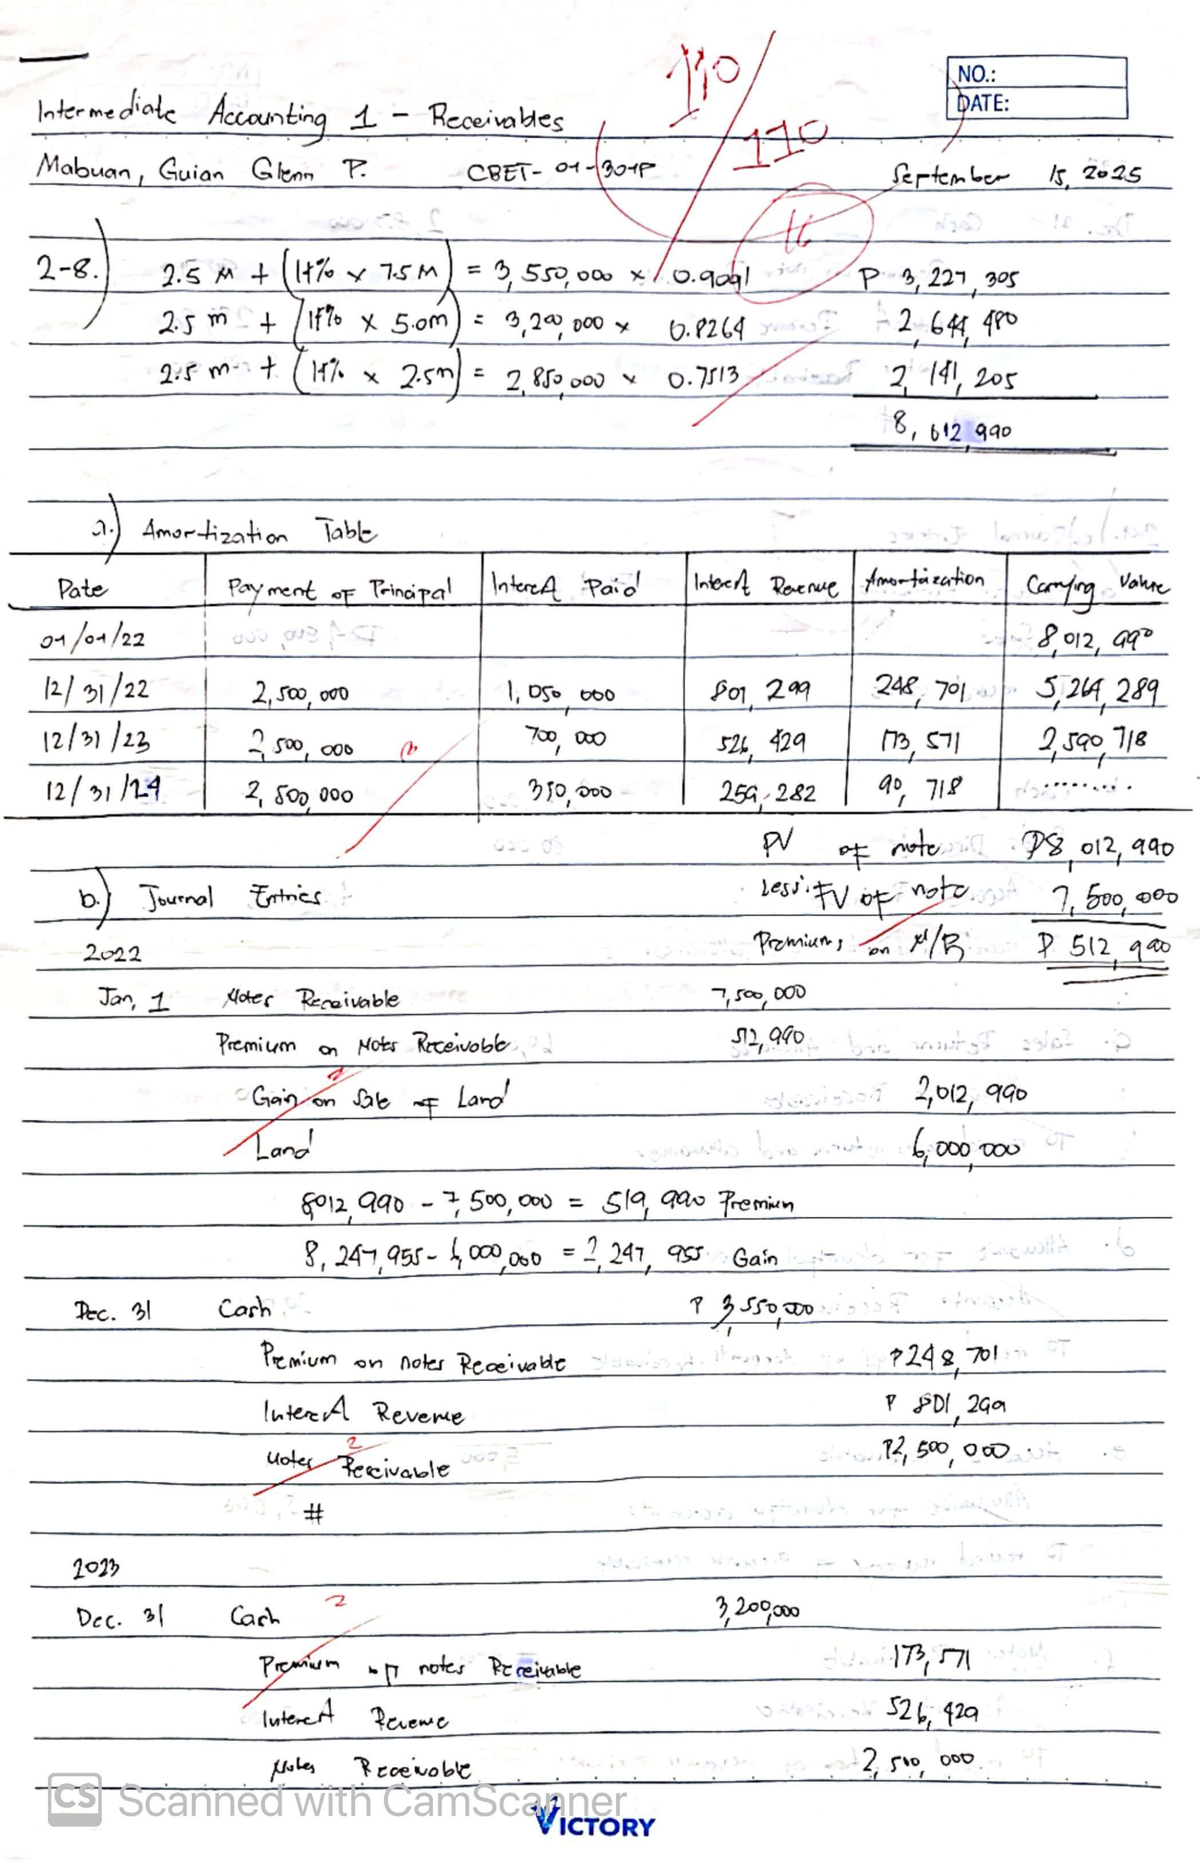 110
110
NO.:
DATE:
Intermediate Accounting 1 - Receivables
Mabuan, Guian Glenn P. CBET-01-301P September 15, 2025
16
2-8.) 2.5 M + (14% x 7.5M) = 3,550,000 x 0.9091 P 3,227,305
2.5 m + (14% x 5.0m) = 3,200,000 x 0.8264 2,644,480
2.5 m + (14% x 2.5m) = 2,850,000 x 0.7513 2,141,205
8,012,990
a.) Amortization Table
Date Payment of Principal Interest Paid Interest Revenue Amortization Carrying Value
01/01/22 8,012,990
12/31/22 2,500,000 1,050,000 801,299 248,701 5,264,289
12/31/23 2,500,000 700,000 526,429 173,571 2,590,718
12/31/24 2,500,000 350,000 259,282 90,718 ........
PV of note P8,012,990
b.) Journal Entries Less: FV of note 7,500,000
2022 Premiums on N/R P 512,990
Jan, 1 Notes Receivable 7,500,000
Premium on Notes Receivable 512,990
2
Gain on Sale of Land 2,012,990
Land 6,000,000
8012,990 - 7,500,000 = 519,990 Premium
8,247,955 - 6,000,000 = 2,247,955 Gain
Dec. 31 Cash P 3,550,000
Premium on notes Receivable P248,701
Interest Revenue P 801,299
2
Notes Receivable P2,500,000
#
2023
Dec. 31 Cash 2 3,200,000
Premium on notes Receivable 173,571
Interest Revenue 526,429
Notes Receivable 2,500,000
CS Scanned with CamScanner
VICTORY